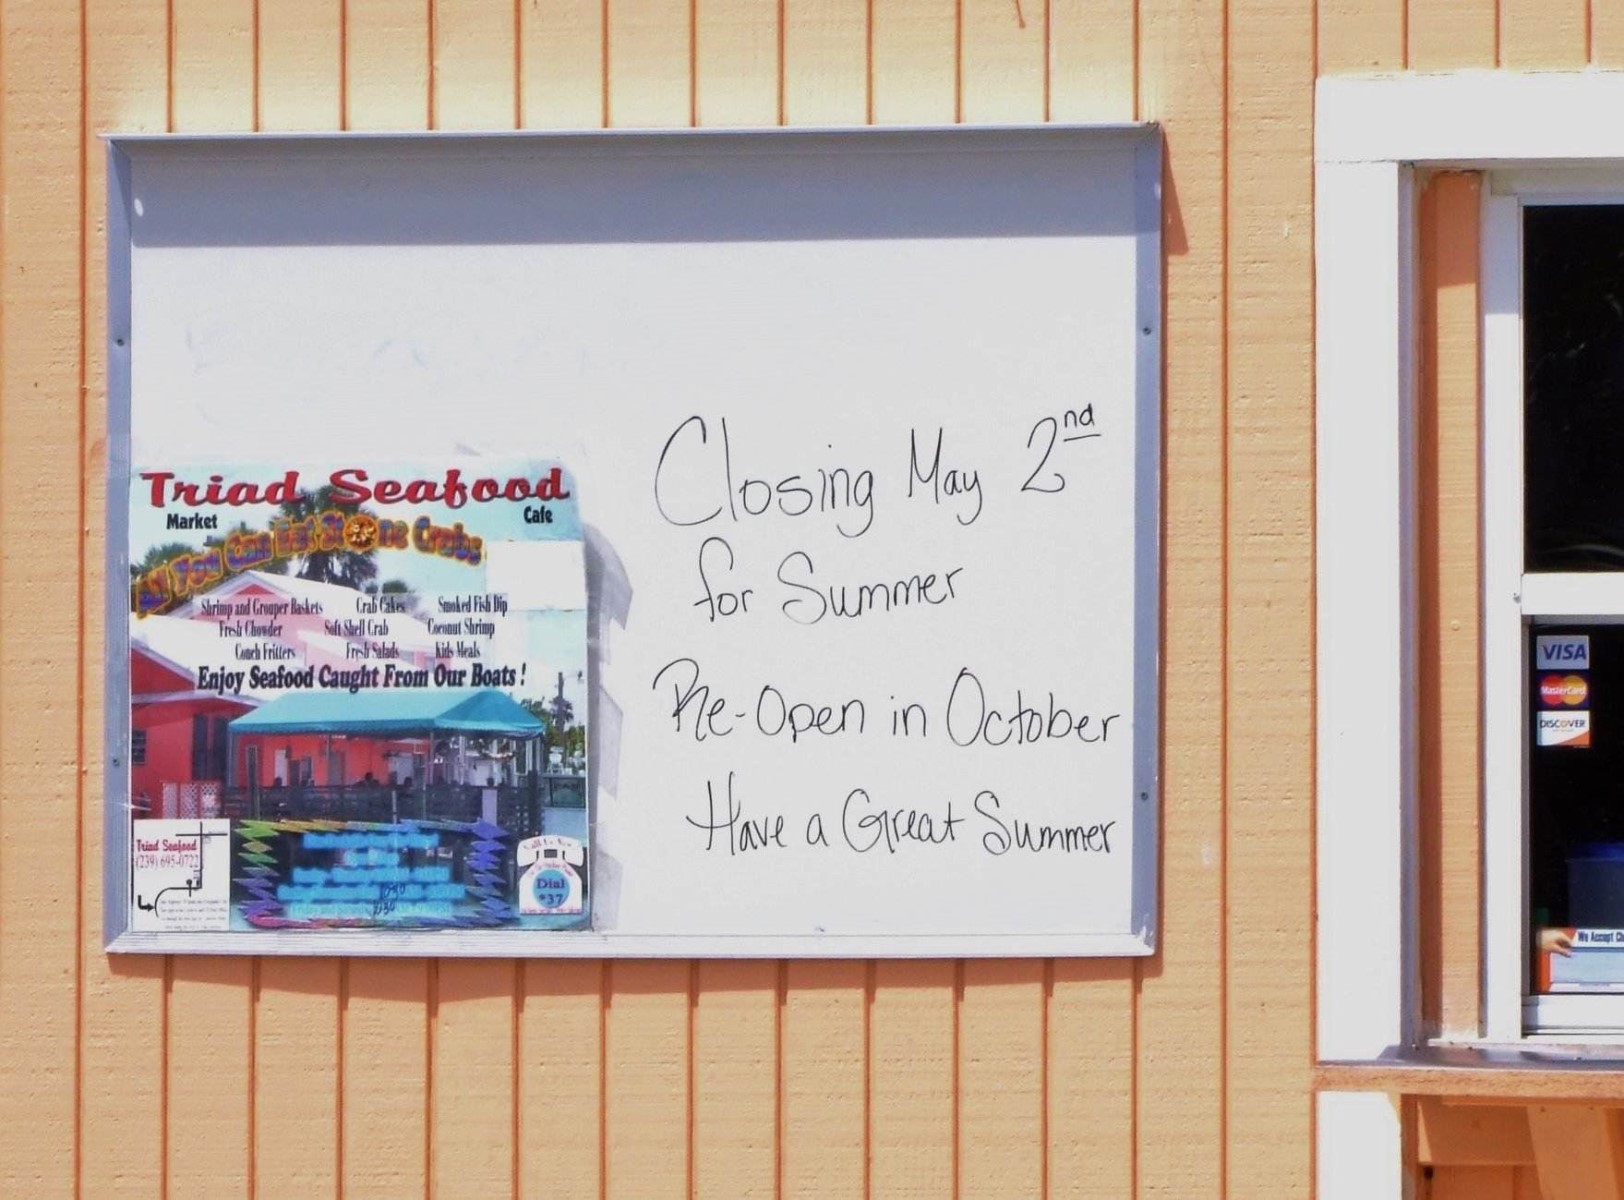 Triad Seafood
Market Cafe
All You Can Eat Stone Crabs
Shrimp and Grouper Baskets Crab Cakes Smoked Fish Dip
Fresh Chowder Soft Shell Crab Coconut Shrimp
Conch Fritters Fresh Salads Kids Meals
Enjoy Seafood Caught From Our Boats!
Triad Seafood
(239) 695-0722
Dial
*37
Closing May 2nd
for Summer
Re-Open in October
Have a Great Summer
VISA
MasterCard
DISCOVER
We Accept